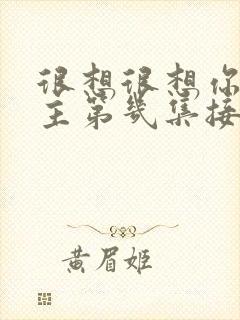 很想很想你
主第几集接
黄眉姬